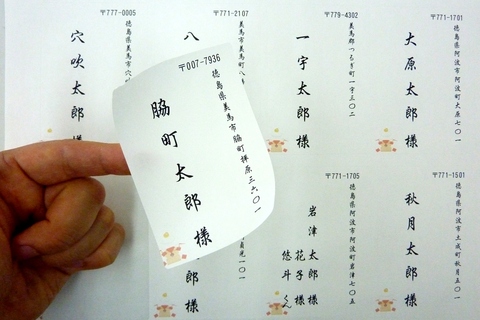 〒777-0005
徳島県美馬市穴吹
穴吹太郎
〒771-2107
美馬市美馬町八
八
〒779-4302
美馬郡つるぎ町一宇三〇二
一宇太郎様
〒771-1701
徳島県阿波市阿波町大原七〇一
大原太郎様
〒007-7936
徳島県美馬市脇町拝原三六〇一
脇町太郎様
郎様
〒771-1705
徳島県阿波市阿波町岩津七〇五
岩津太郎様
花子様
悠斗くん
〒771-1501
徳島県阿波市土成町秋月五〇一
秋月太郎様